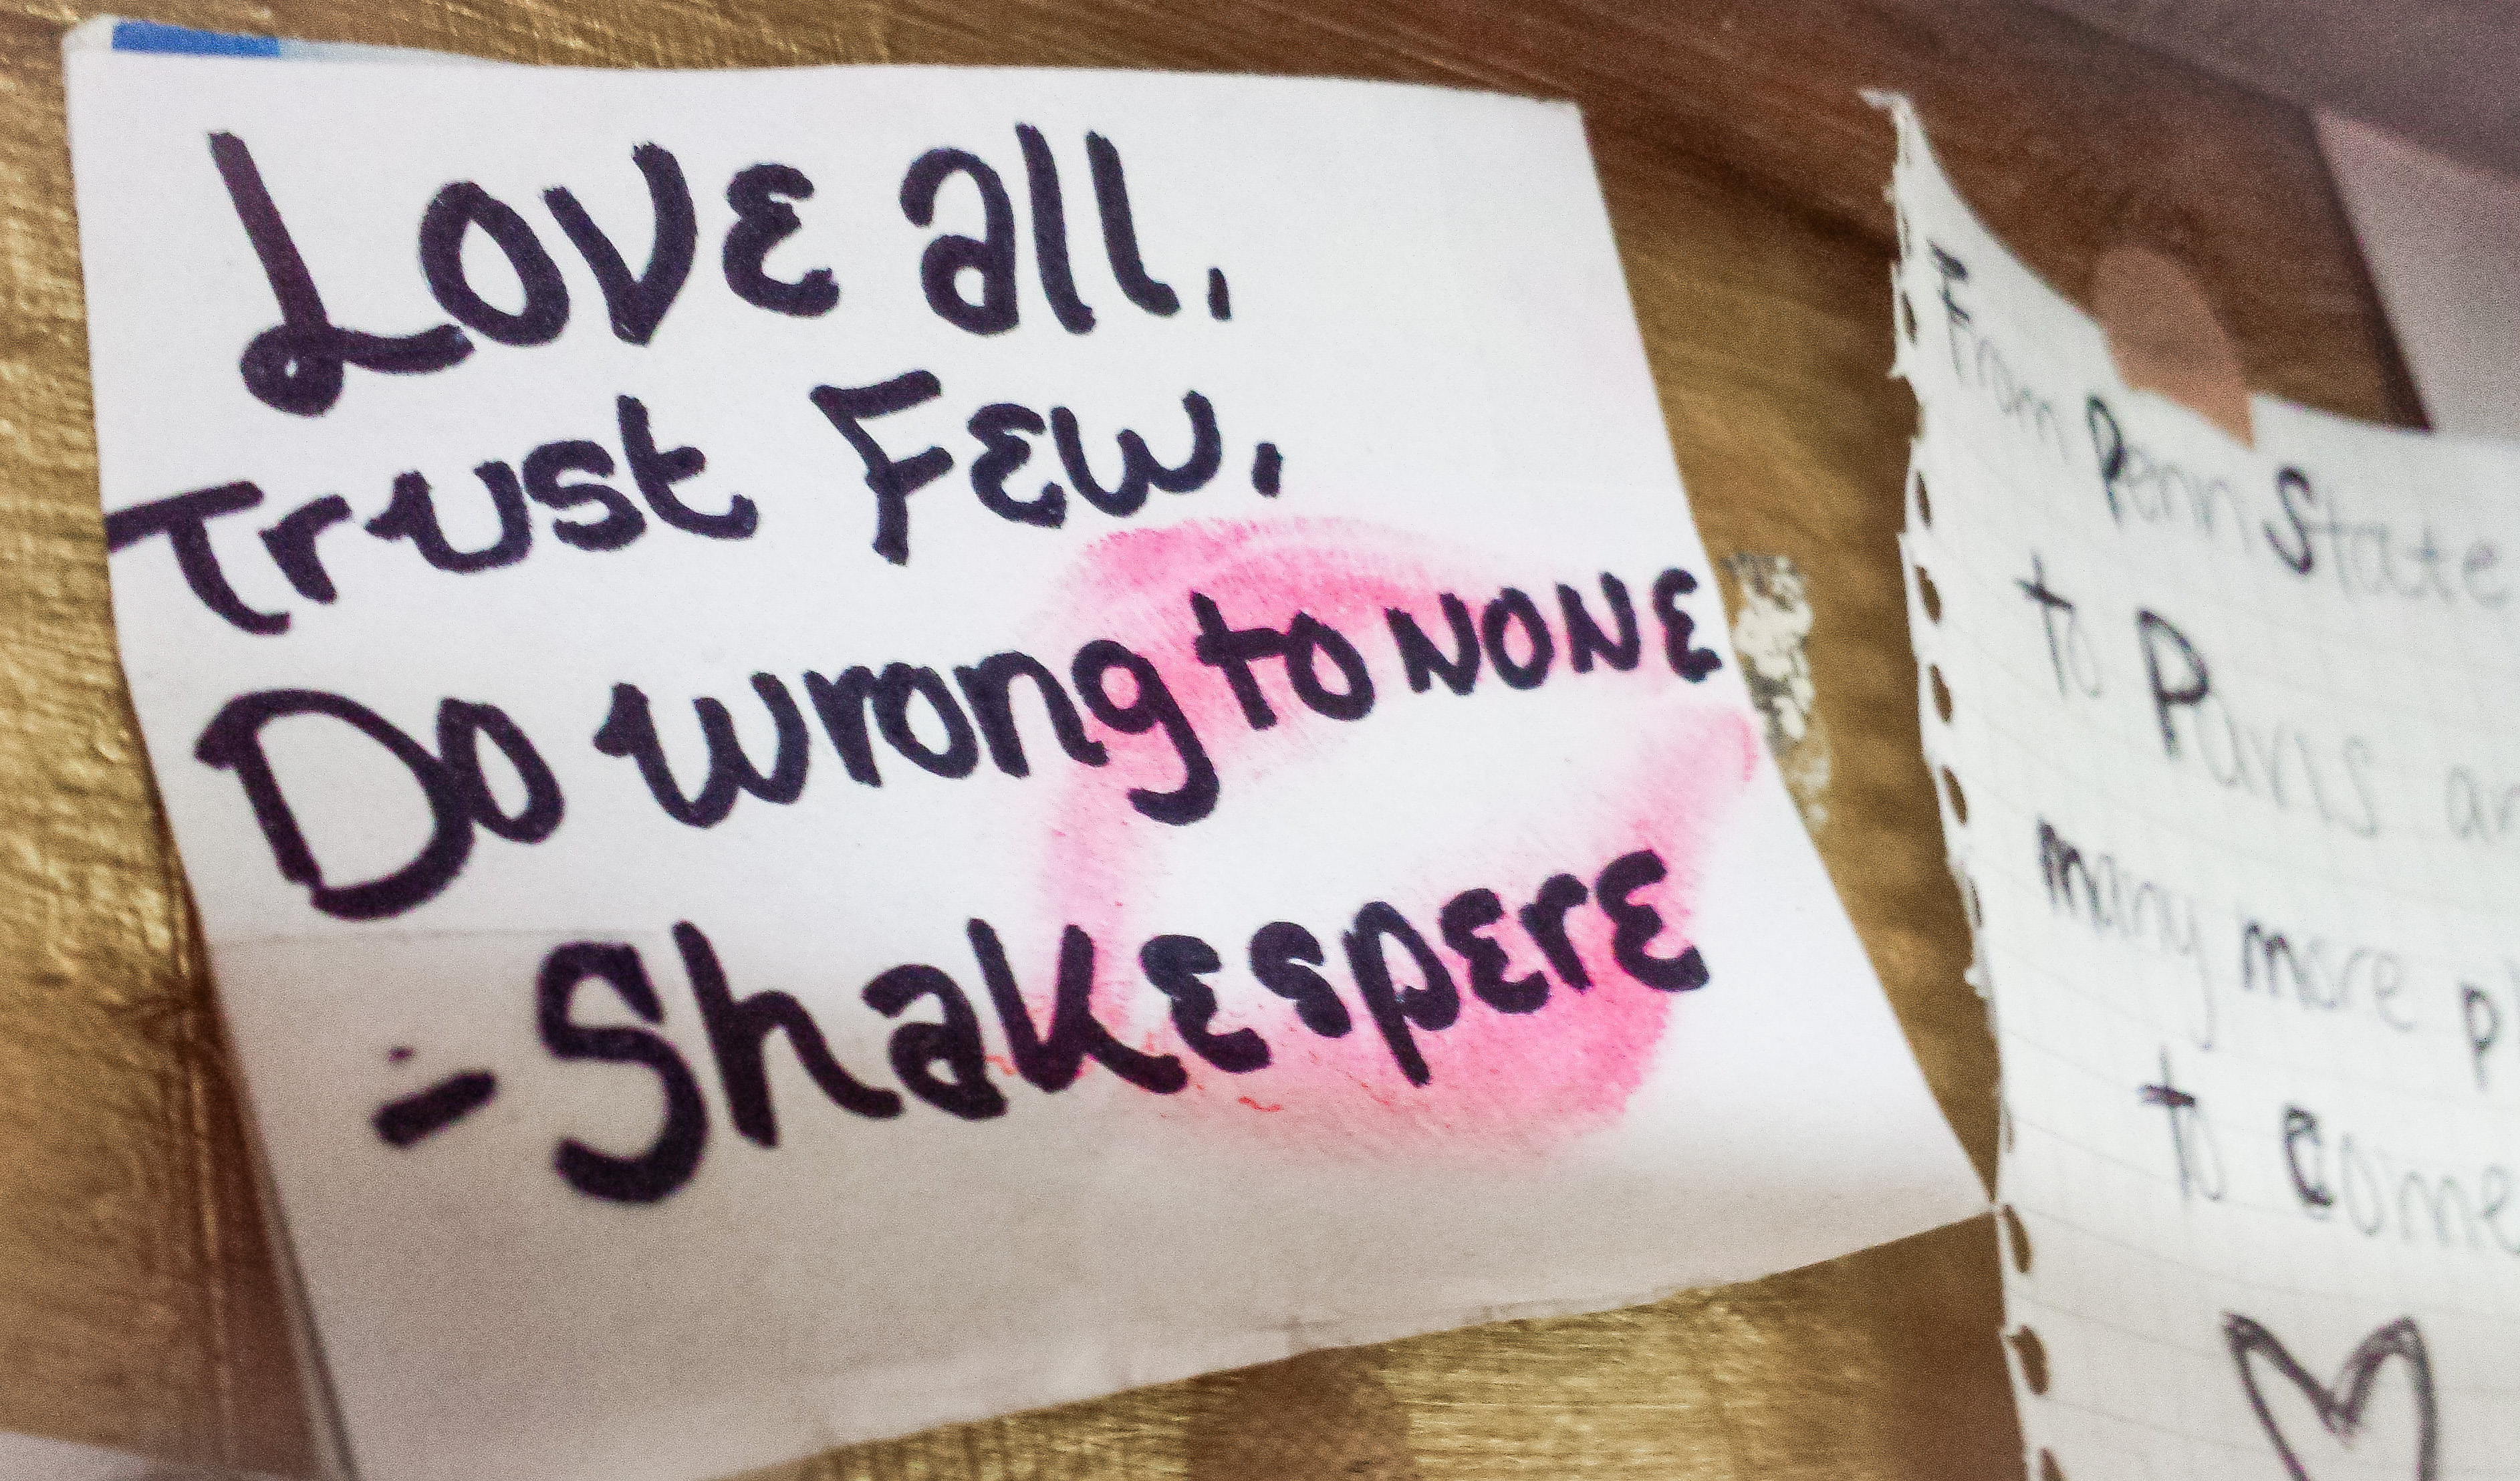 Love all,
Trust Few,
Do wrong to NONE
-Shakespere
From Penn State
to Paris
many more
to come